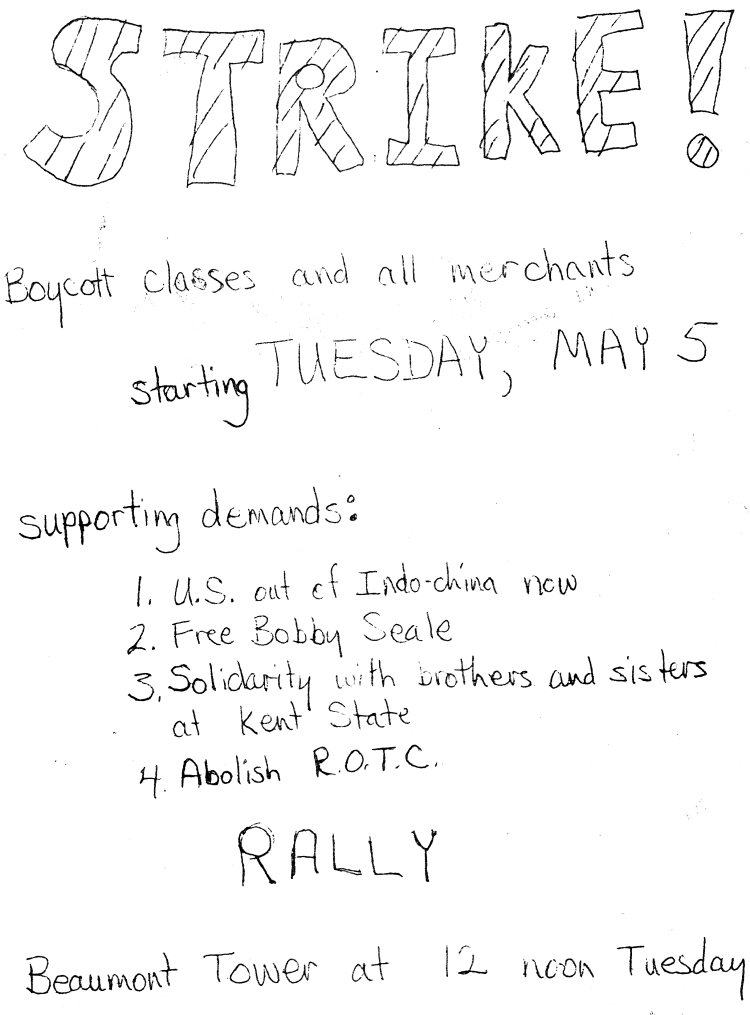 STRIKE!
Boycott classes and all merchants
starting TUESDAY, MAY 5
supporting demands:
1. U.S. out of Indo-china now
2. Free Bobby Seale
3. Solidarity with brothers and sisters
at Kent State
4. Abolish R.O.T.C.
RALLY
Beaumont Tower at 12 noon Tuesday